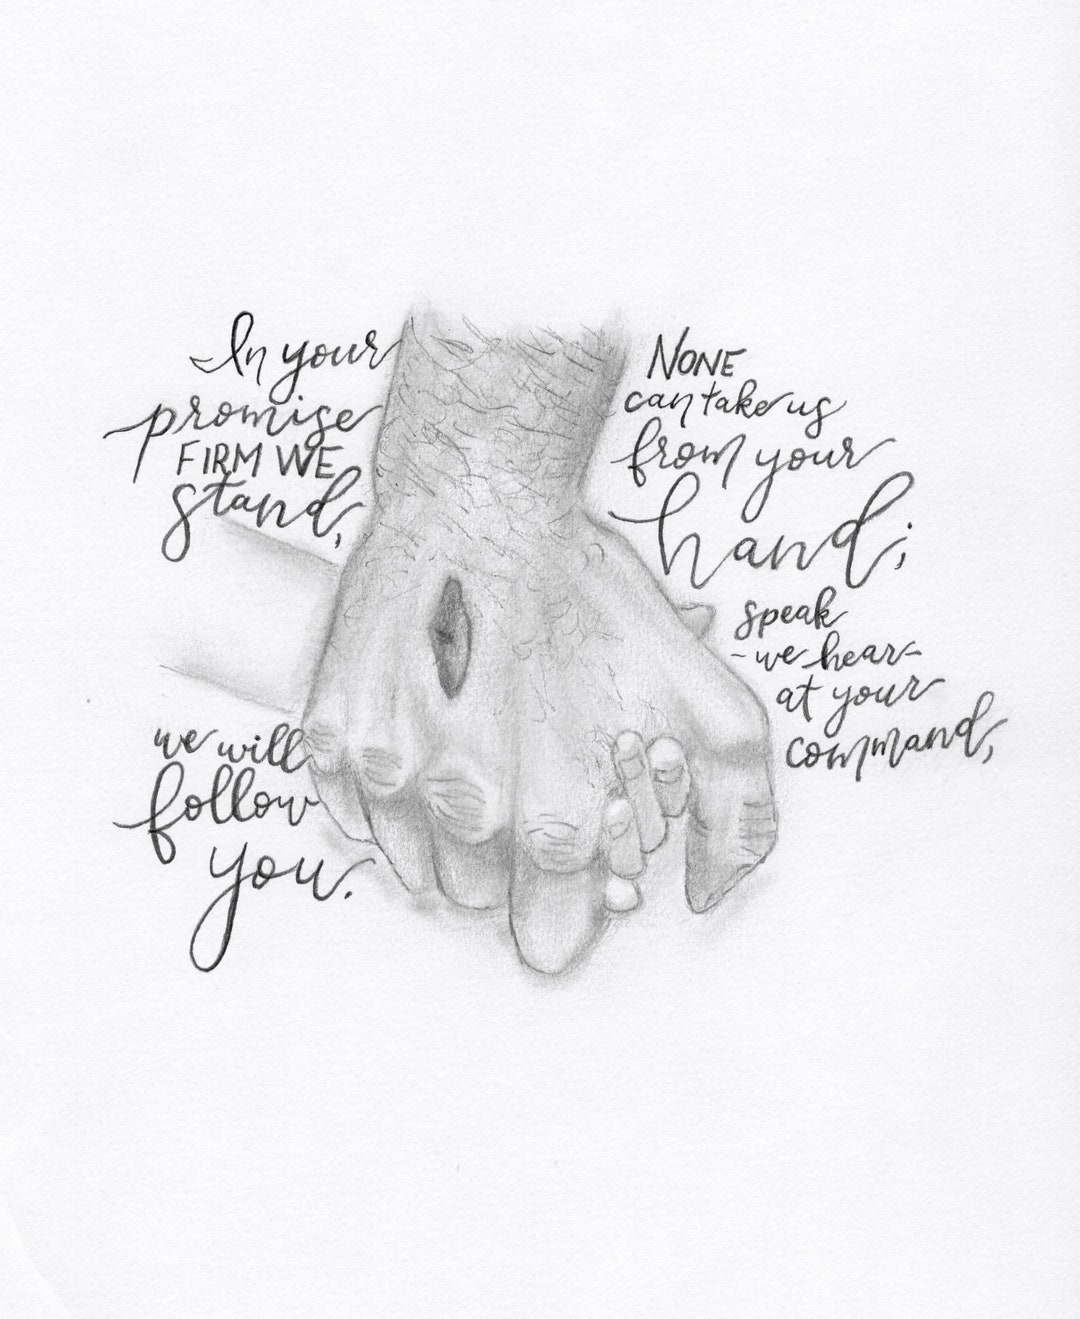 In your
promise
FIRM WE
stand,
NONE
can take us
from your
hand;
speak
-we hear-
at your
command,
we will
follow
you.